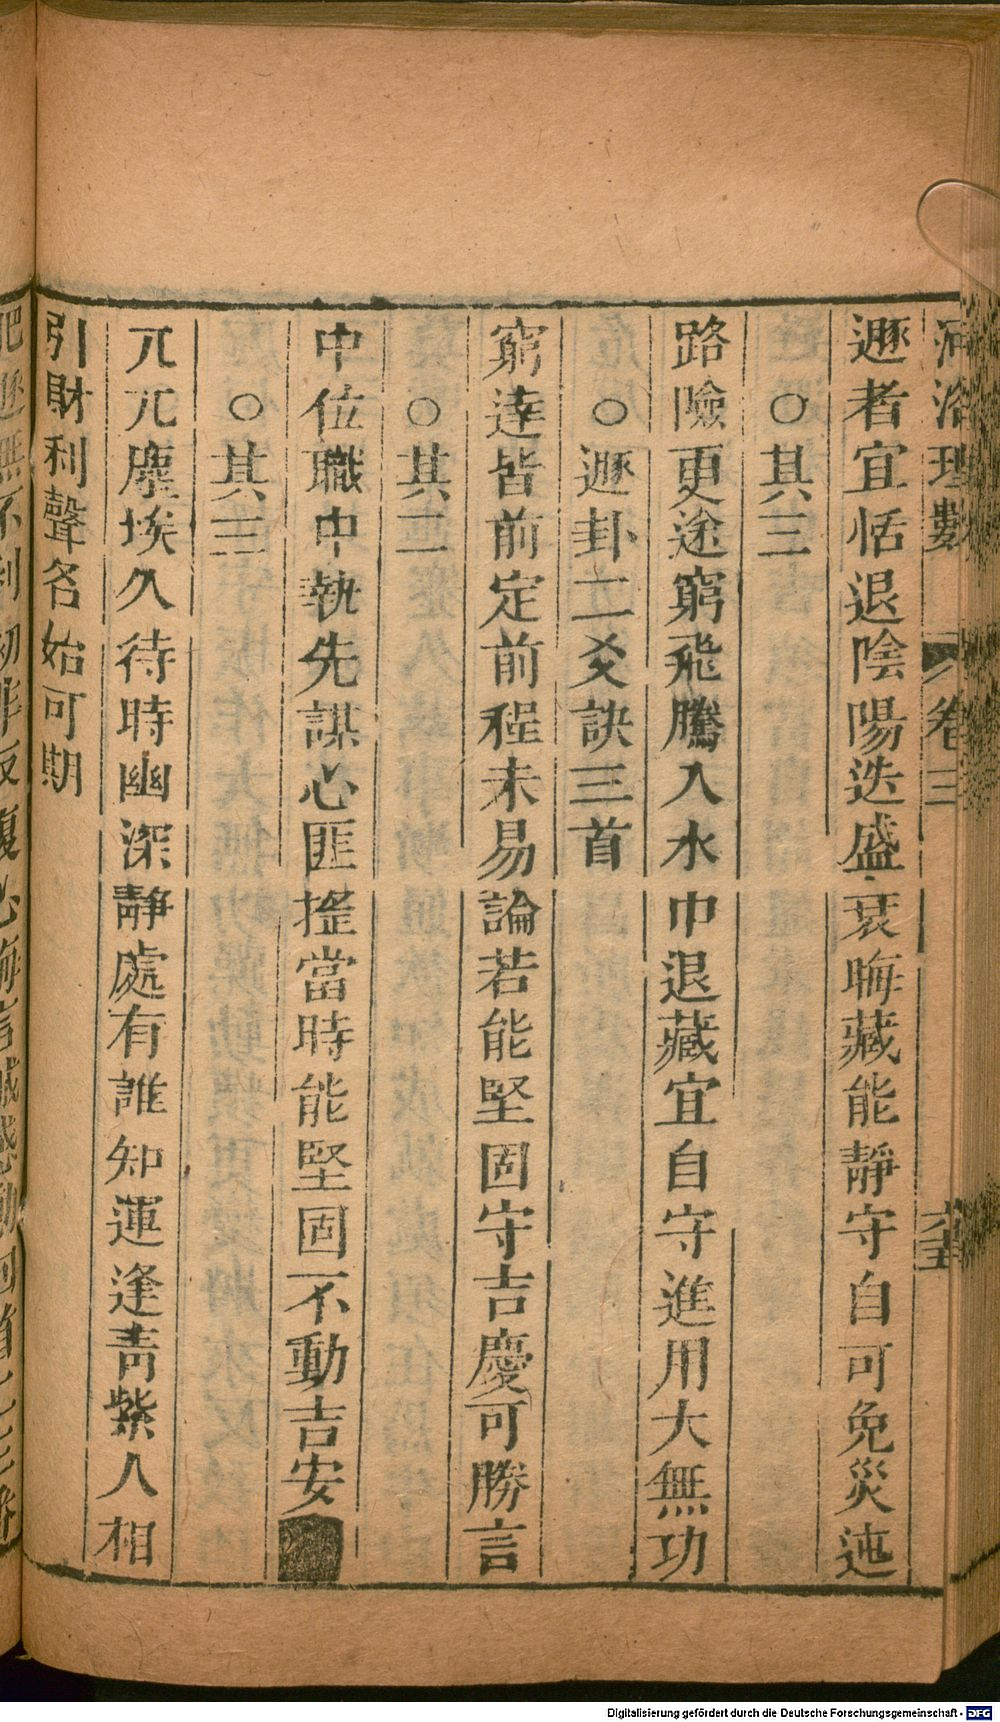 河洛理數 卷三 六十五
遯者宜恬退陰陽迭盛衰晦藏能靜守自可免災迍
○其三
路險更途窮飛騰入水中退藏宜自守進用大無功
○遯卦二爻訣三首
窮達皆前定前程未易論若能堅固守吉慶可勝言
○其二
中位職中執先謀心匪搖當時能堅固不動吉安
○其三
兀兀塵埃久待時幽深靜處有誰知運逢靑紫人相
引財利聲名始可期
肥遯無不利初非反復心
Digitalisierung gefördert durch die Deutsche Forschungsgemeinschaft - DFG